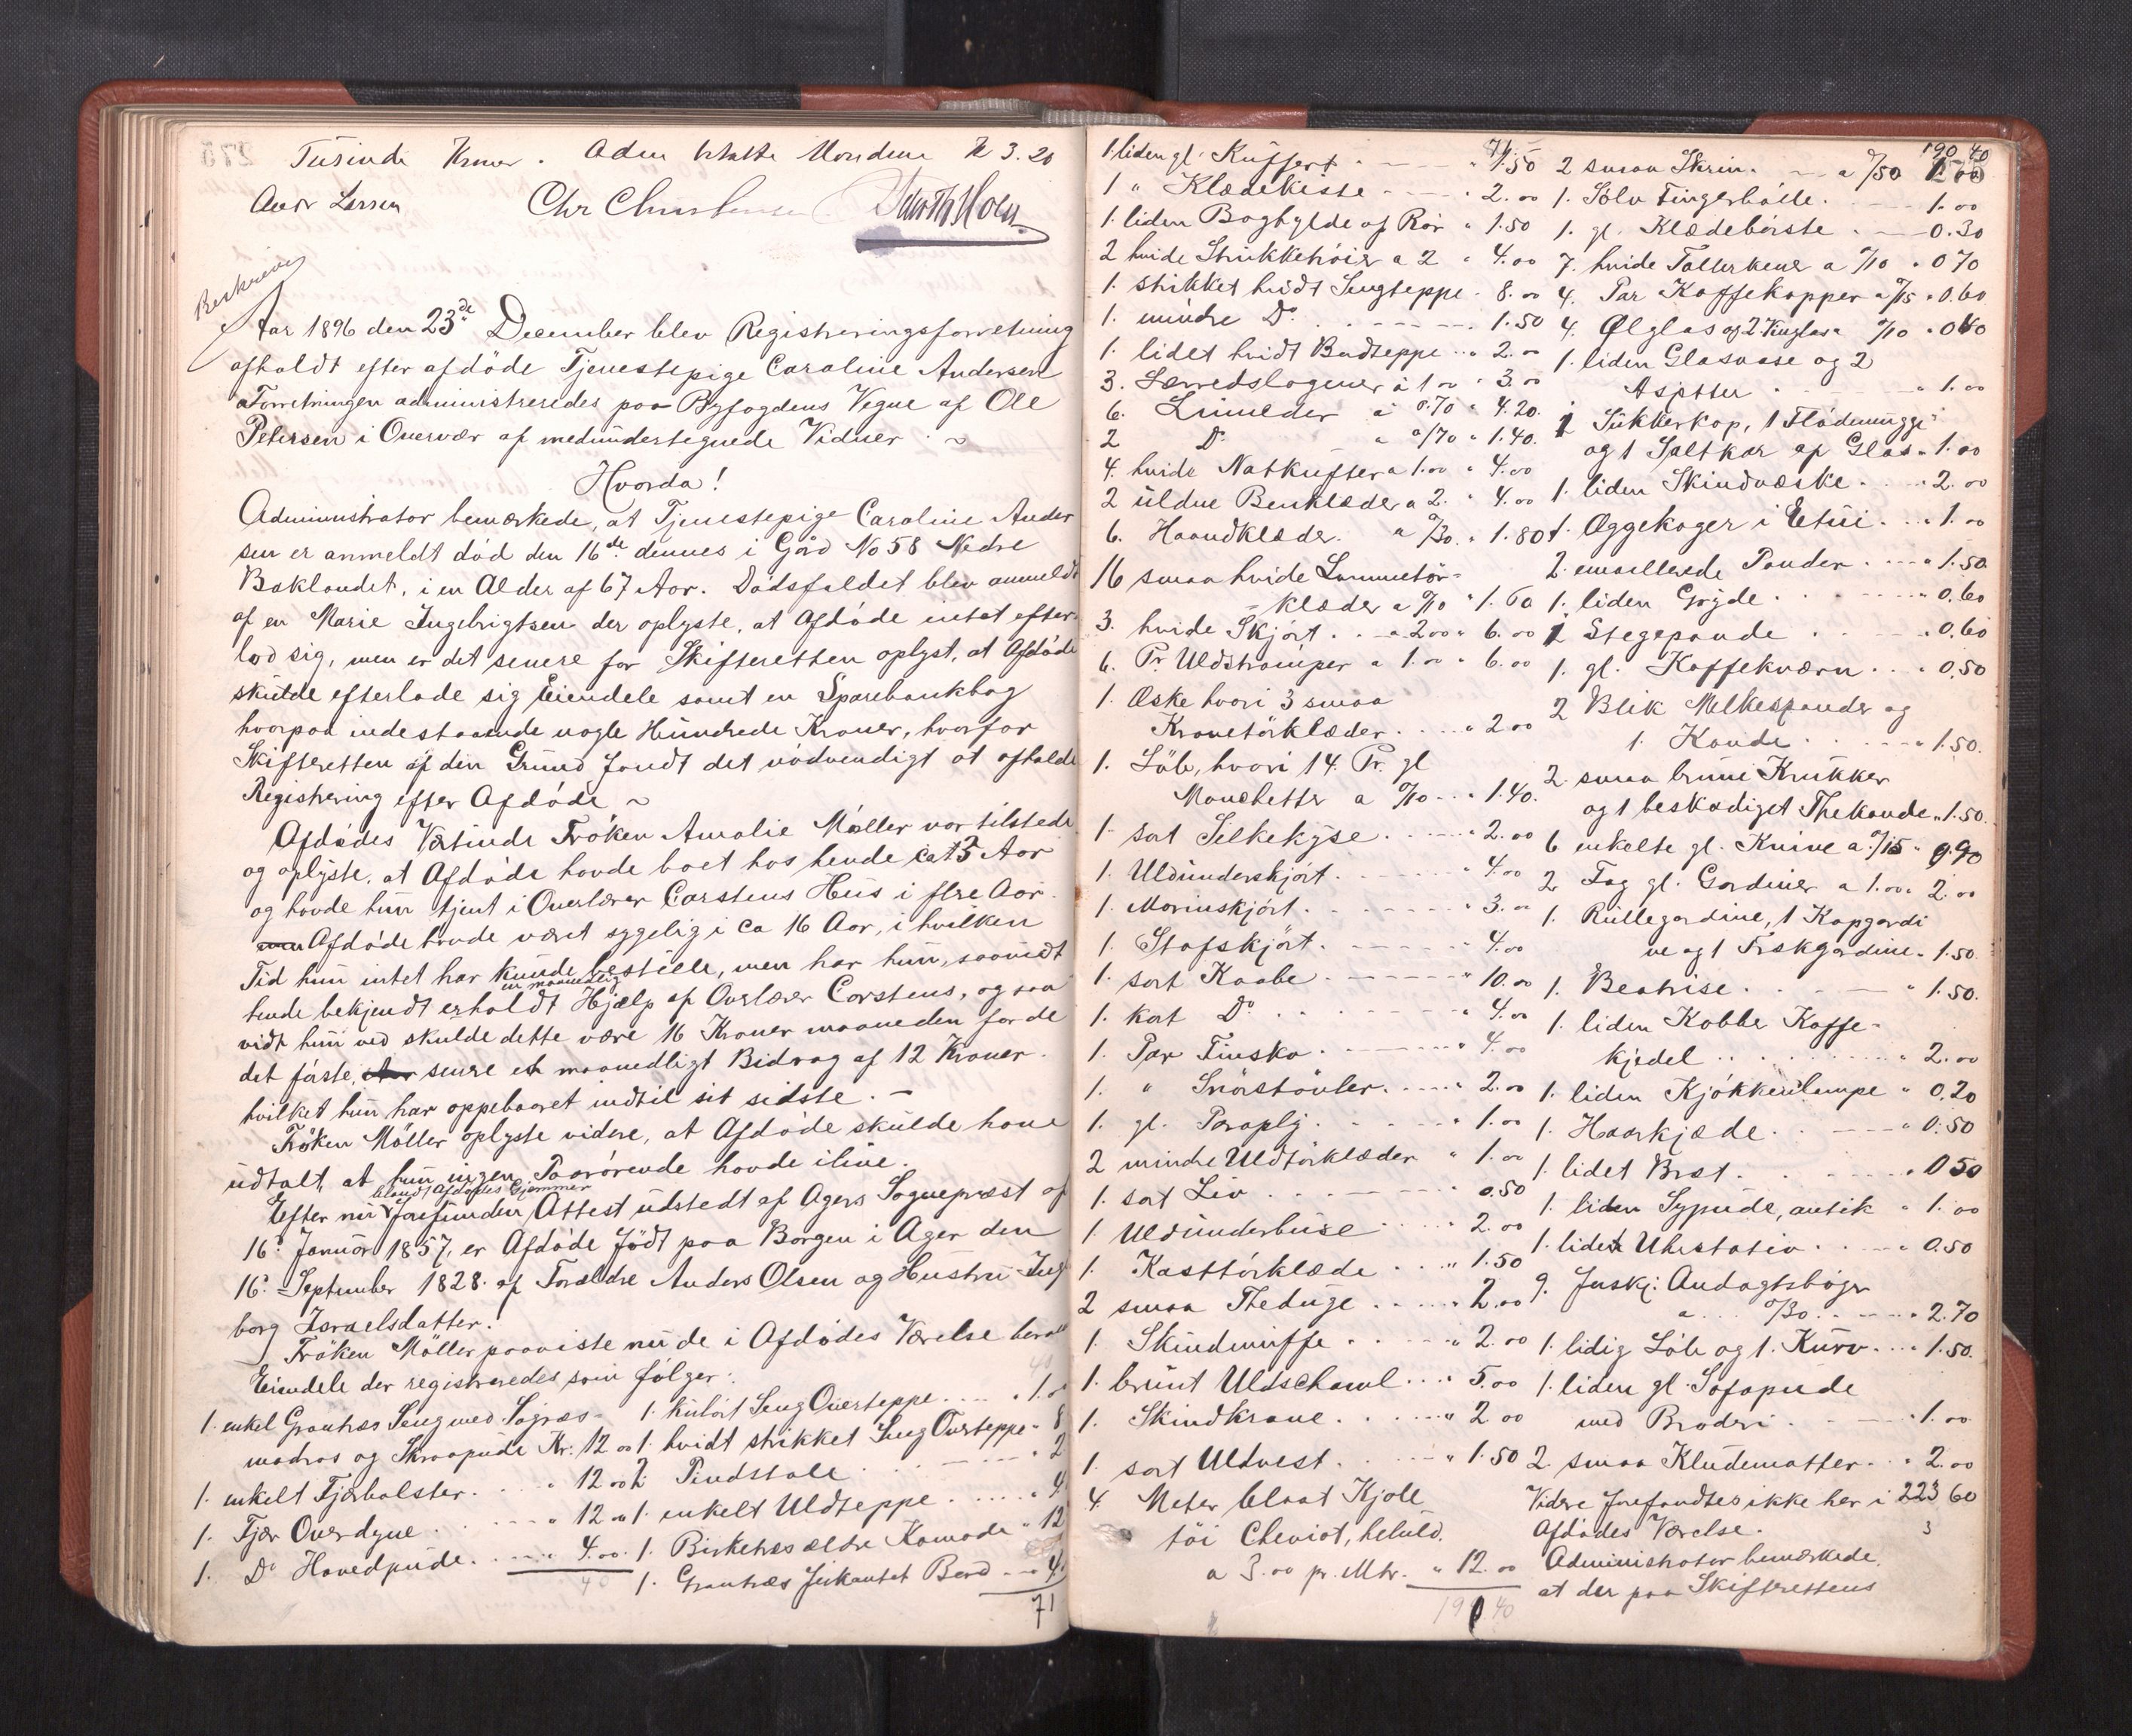 Tusinde Kroner. Aden betalte Mondene K 3.20
Andr Larsen Chr Christensen
Beskreven
Aar 1896 den 23de December blev Registreringsforretning
afholdt efter afdöde Tjenestepige Caroline Andersen
Forretningen administreredes paa Byfogdens Vegne af Ole
Petersen i Overvær af medundertegnede Vidner. ~
Hvorda!
Administrator bemærkede, at Tjenestepige Caroline Ander
sen er anmeldt död den 16de dennes i Gård No 58 Nedre
Baklandet, i en Alder af 67 Aar. Dödsfaldet blev anmeldt
af en Marie Ingebrigtsen der oplyste, at Afdöde intet efter-
lod sig, men er det senere for Skifteretten oplyst, at Afdöde
skulde efterlade sig Eiendele samt en Sparebankbog
hvorpaa indestaaende nogle Hundrede Kroner, hvorfor
Skifteretten af den Grund fandt det nödvendigt at afholde
Registrering efter Afdöde ~
Afdödes Værtinde Fröken Amalie Möller var tilstede
og oplyste, at Afdöde havde boet hos hende cat 5 Aar
og havde hun tjent i Overlærer Carstens Hus i flre Aar.
Afdöde havde været sygelig i ca 16 Aar, i hvilken
Tid hun intet har kunde bestille, men har hun, saavidt
hende bekjendt erholdt en maanedlig Hjælp af Overlærer Carstens, og saa
vidt hun ved skulde dette være 16 Kroner maaneden for de
det förste, senere et maanedligt Bidrag af 12 Kroner.
hvilket hun har oppebaaret indtil sit sidste. –
Fröken Möller oplyste videre, at Afdöde skulde have
udtalt, at hun ingen Paarörende havde ilive.
Efter nu blandt Afdödes Gjemmer forefunden Attest udstedt af Agers Sognepræst af
16. Januar 1857, er Afdöde födt paa Borgen i Ager den
16. September 1828. af Forældre Anders Olsen og Hustru Inge
borg Israelsdatter.
Fröken Möller paaviste nu de i Afdödes Værelse
Eiendele der registreredes som fölger:
1. enkel Grantræs Seng med Sögræs-
madras og Skraapude Kr: 12 00
1. enkelt Fjærbolster. " 12 00
1. Fjær Overdyne. " 12 00
1. Do Hovedpude. " 4.00.
40
1. kulört Seng Overteppe " 1.
1. hvidt strikket Seng Overteppe " 8
2. Pindstole " 2
1. enkelt Uldteppe " 4
1. Birketræs ældre Komode " 12
1. Grantræs firkantet Bord " 4
71
71.
1 liden gl. Kuffert " 1.50
1 " Klædekiste " 2.00
1. liden Boghylde af Rör " 1.50
2 hvide Strikketröier a 2 " 4.00
1. strikket hvidt Sengteppe " 8.00
1. mindre Do. 1.50
1. lidet hvidt Bordteppe " 2.00
3. Lærredslagener à 1 00 " 3.00
6. Linneder à 0.70 " 4.20.
2 Do " 0/70 " 1.40.
4. hvide Natkufter a 1.00 " 4.00
2 uldne Benklæder a 2. " 4.00
6. Haandklæder. a 0/30. " 1.80
16 smaa hvide Lommetör-
klæder a 0/10 " 1.60
3. hvide Skjört. a 2 00 " 6.00
6. Pr. Uldströmper a 1.00 " 6.00
1. Æske hvori 3 smaa
Kravetörklæder " 2 00
1. Löb, hvori 14. Pr. gl
Manchetter a 0/10 " 1.40.
1. sort Silkekyse " 2.00
1. Uldunderskjört. " 4.00
1. Morinskjört. " 3.00
1. Stofskjört. 4.00
1. sort Kaabe " 10.00
1. kort Do. " 4.00
1. Par Finsko. " 4.00
1. " Snörstövler. " 2.00
1. gl. Paraply. " 1.00
2 mindre Uldtörklæder " 1.00
1. sort Liv 0.50
1. Uldunderbuse 2.00
1. Kasttörklæde " 1.50
2 smaa Theduge " 2.00
1. Skindmuffe " 2.00
1. brunt Uldschawl 5.00
1. Skindkrave. " 2.00
1. sort Uldvest. " 1.50
4 Meter blaat Kjole
töi Cheviot, heluld.
a 3.00 pr. Mtr. " 12.00
190.40
190 40
2 smaa Skrin. a 0/50 1 00
1. Sölv Fingerbölle. 1.00
1. gl. Klædebörste 0.30
7. hvide Tallerkener a 0/10 " 0 70
4. Par Kaffekopper a 0/15 " 0.60
4. Ølglas og 2 Vinglas a 0/10 " 0 60
1. liden Glasvase og 2
Asjetter " 1.00
1 Sukkerkop, 1 Flödemugge
og 1 Saltkar af Glas " 1.00
1. liden Skindvæske. " 2.00
1. Æggekoger i Etui. " 1.00
2. emaillerede Pander. " 1.50.
1. liden Gryde. " 0.60
1 Stegepande " 0.60
1. gl. Kaffekværn. " 0.50
2 Blik Melkespander og
1. Kande " 1.50.
2. smaa brune Krukker
og 1 beskadiget Thekande " 1.50.
6 enkelte gl. Knive a 0/15 " 0.90
2 Fag gl. Gardiner a 1.00 " 2.00
1. Rullegardine, 1 Kapgardi
ne og 1 Trækgardine " 1.50.
1. Beatrise. " 1.50.
1. liden Kobber Kaffe-
kjedel " 2.00
1. liden Kjökkenlampe " 0.20
1. Haarkjæde. " 0.50
1. lidet Bræt. " 0 50
1. liden Sypude, antik " 1.00
1. lidet Uhrstativ " 0.50
9. Andagtsböger
a 0/30 " 2.70
1. lidig Löb og 1. Kurv. " 1.50.
1. liden gl. Sofapude
med Broderi. " 1.00
2. smaa Kludematter. " 2.00
Videre forefandtes ikke her i 223 60
Afdödes Værelse.
Administrator bemærkede,
at der paa Skifterettens